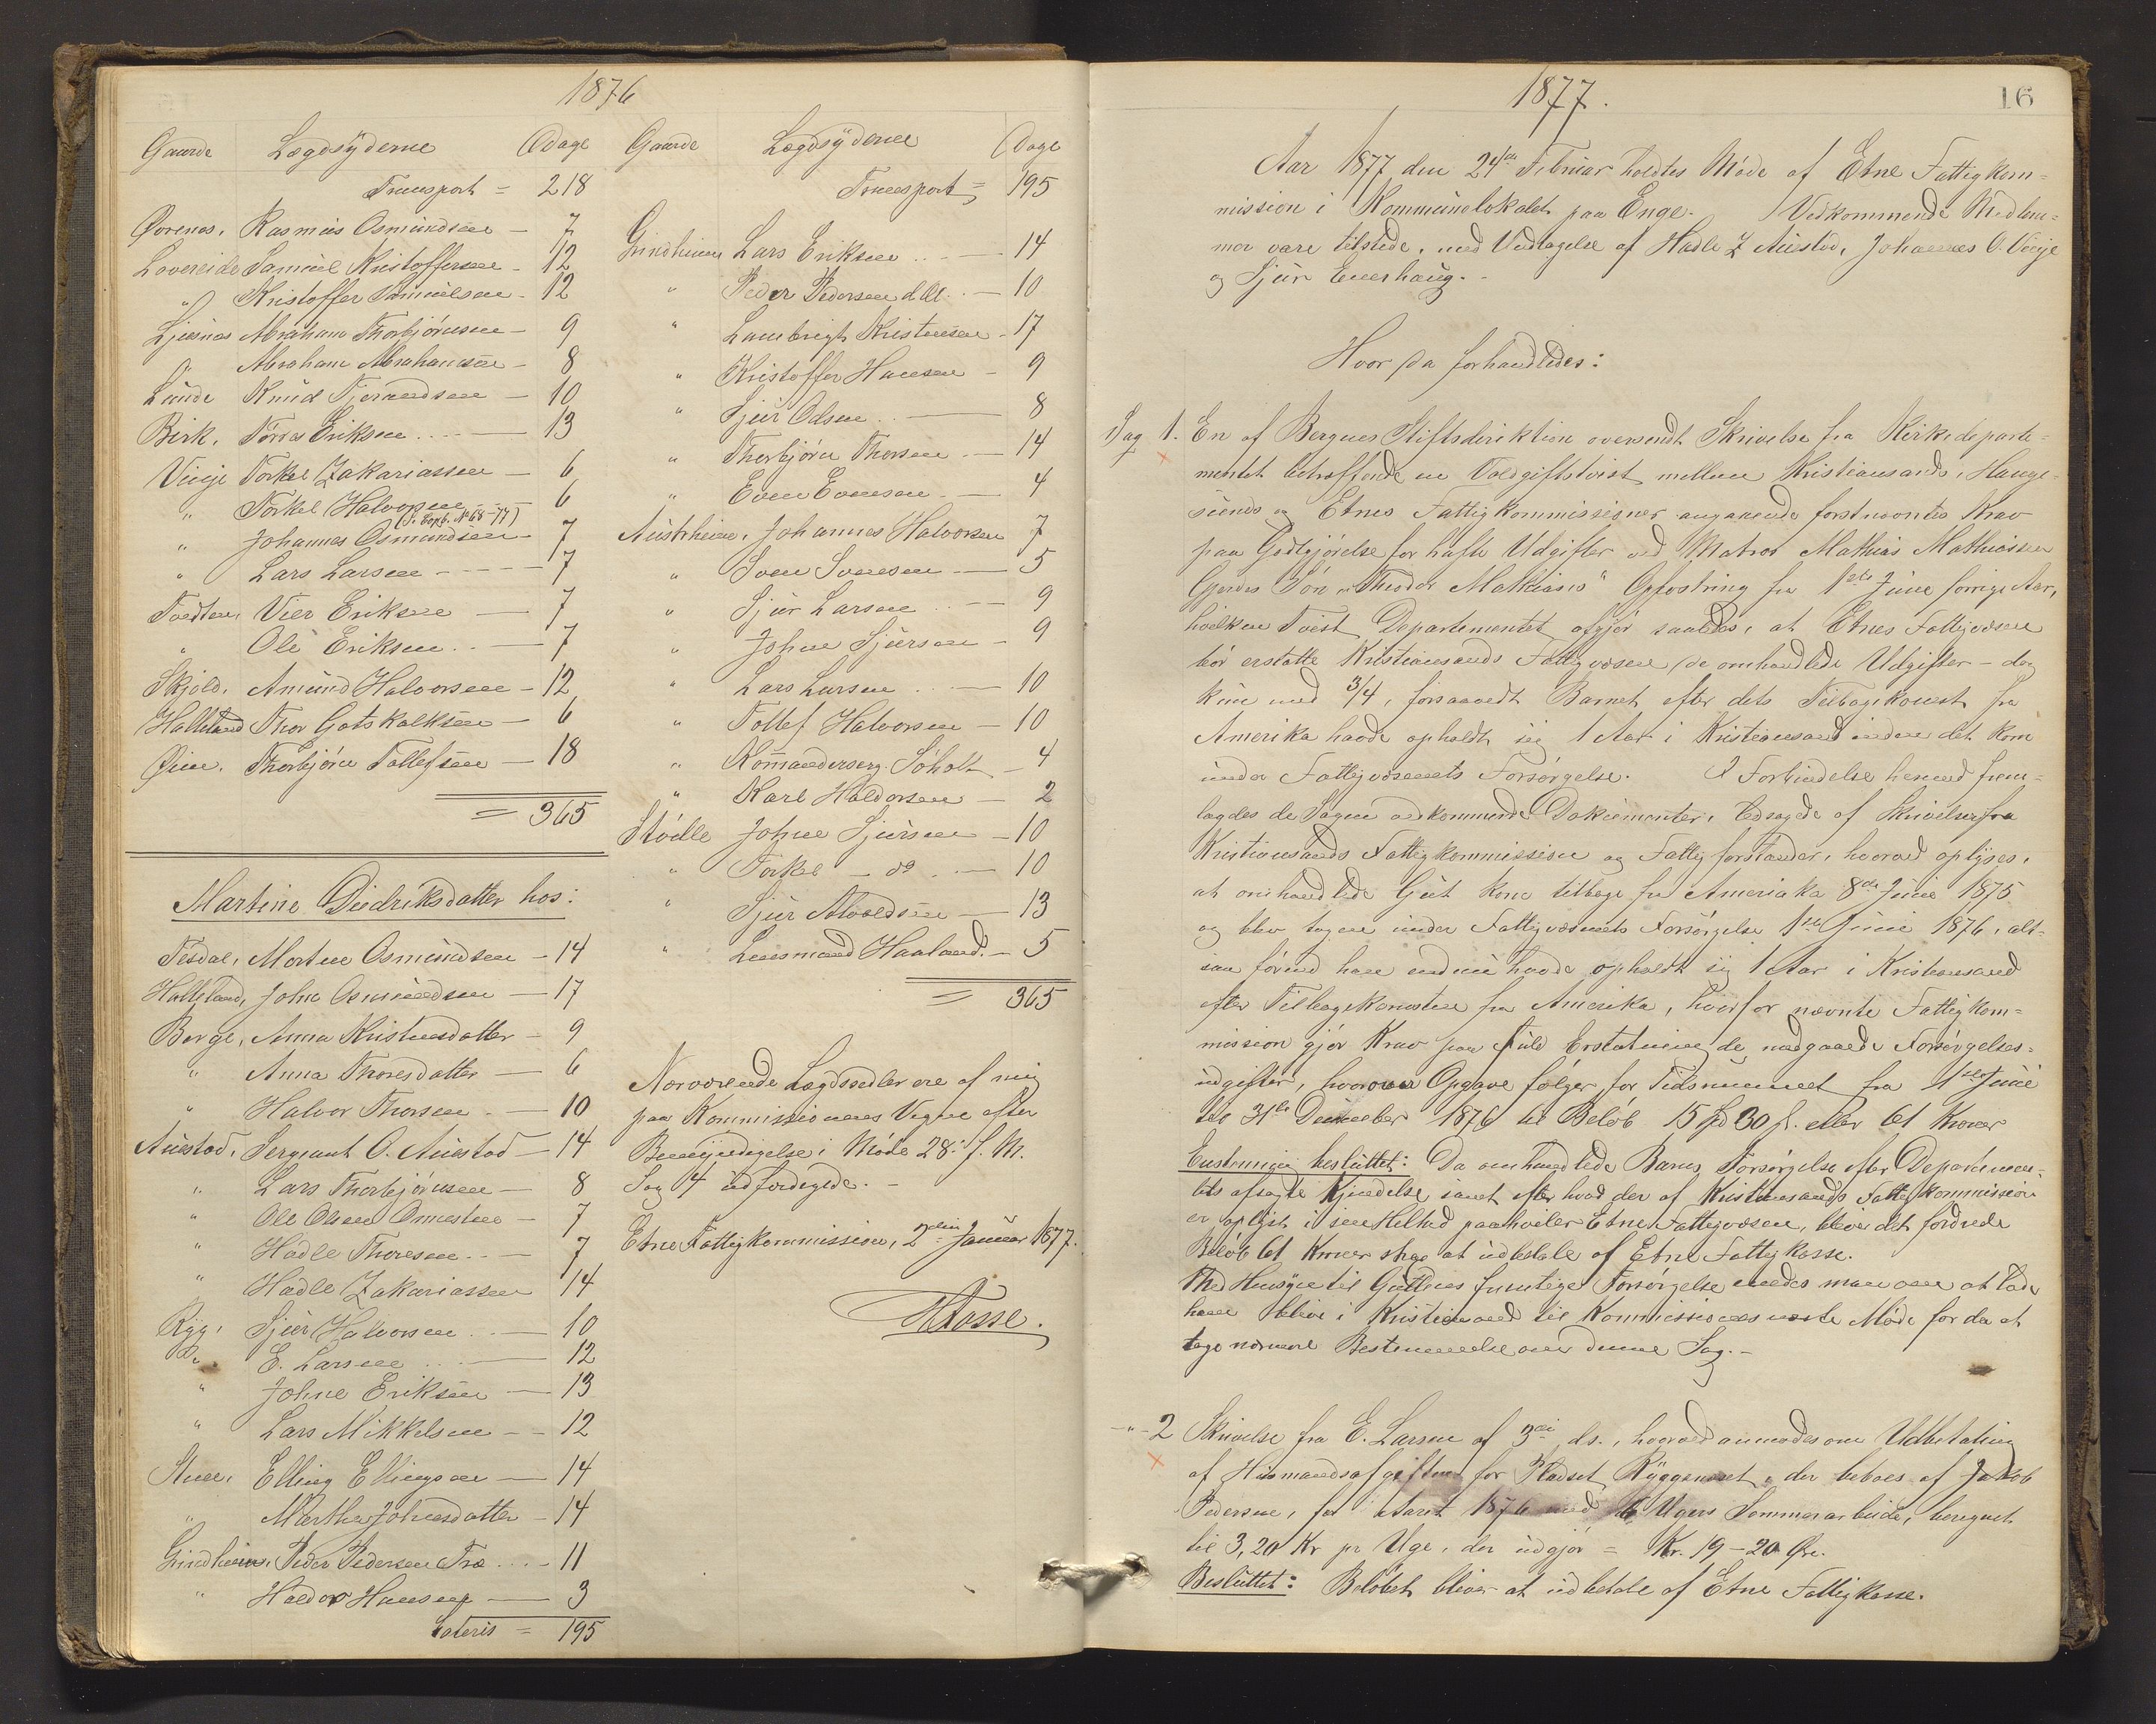 1876
Gaarde Lægdsyderne Dage
Transport = 218
Ørenes, Rasmus Osmundsen — 7
Lovereide Samuel Kristoffersen — 12
" Kristoffer Samuelsen — 12
Ljusnes Abraham Thorbjørnsen — 9
" Abraham Abrahamsen — 8
Lunde Knud Tjerandsen — 10
Birk, Tørres Eriksen — 13
Vinje Torkel Zakariassen — 6
" Torkel Halvorsen — 6
(s. Copb. No 68-77)
" Johannes Osmundsen — 7
" Lars Larsen — 7
Tvedten, Vier Eriksen — 7
" Ole Eriksen — 7
Skjold, Amund Halvorsen — 12
Halleland Thor Gotskalksen — 6
Øien, Thorbjørn Tollefsen — 18
= 365
Martine Diedriksdatter hos:
Tesdal, Morten Osmundsen — 14
Halleland, John Osmundsen — 17
Berge, Anna Kristensdatter — 9
" Anna Thoresdatter — 6
" Halvor Thorsen — 10
Austad, Sergeant O. Austad — 14
" Lars Thorbjørnsen — 8
" Ole Olsen Onnesteen — 7
" Hadle Thoresen — 7
" Hadle Zakariassen 14
Ryg, Sjur Halvorsen — 10
" E. Larsen — 12
" Johne Eriksen — 13
" Lars Mikkelsen — 12
Stuen, Elling Ellingsen — 14
" Martha Johnesdatter — 14
Grindheim, Peder Pedersen Træ — 11
" Haldor Hansen — 3
Lateris = 195
Gaarde Lægdsyderne Dage
Transport = 195
Grindheim Lars Eriksen — 14
" Peder Pedersen d. Æl. — 10
" Lambrigt Kristensen — 17
" Kristoffer Hansen — 9
" Sjur Olsen — 8
" Thorbjørn Thorsen — 14
" Even Evensen — 4
Austrheim, Johannes Halvorsen 7
" Sven Svensen — 5
" Sjur Larsen — 9
" Johne Sjursen — 9
" Lars Larsen — 10
" Tollef Halvorsen — 10
" Komandersergt. Søholt — 4
" Karl Haldorsen — 2
Stødle Johne Sjursen — 10
" Torkel — do — 10
" Sjur Alvaldsen — 13
" Lensmand Haaland. — 5
= 365
Nærværende Lægdssedler ere af mig
paa Kommissionens Vegne efter
Bemyndigelse i Møde 28. f. M.
Sag 4 udfærdigede. —
Etne Fattigkommission, 2den Januar 1877.
H Tosse.
1877.
16
Aar 1877 den 24de Februar holdtes Møde af Etne Fattigkom=
mission i Kommunelokalet paa Enge. Vedkommende Medlem=
mer vare tilstede, med Undtagelse af Hadle Z Austad, Johannes O. Vinje
og Sjur Enershaug. -
Hvor da forhandledes:
Sag 1. En af Bergens Stiftsdirektion oversendt Skrivelse fra Kirkedeparte=
mentet betræffende en Voldgiftstvist mellem Kristiansands, Hauge=
sunds og Etnes Fattigkommissioner angaaende førstnævntes Krav
paa Godtgjørelse for hafte Udgifter ved Matros Mathias Mathiassen
Gjerdes Søn „Theodor Mathias's" Opfostring fra 1ste Juni forrige Aar,
hvilken Tvist Departementet afgjør saaledes, at Etnes Fattigvæsen
bør erstatte Kristiansands Fattigvæsen de omhandlede Udgifter – dog
kun med 3/4, forsaavidt Barnet efter dets Tilbagekomst fra
Amerika havde opholdt sig 1 Aar i Kristiansand inden det kom
under Fattigvæsenets Forsørgelse. I Forbindelse hermed frem=
lagdes de Sagen vedkommende Dokumenter, ledsagede af Skrivelser fra
Kristiansands Fattigkommission og Fattigforstander, hvorved oplyses,
at omhandlede Gut kom tilbage fra Ameriaka 8de Juni 1875
og blev tagen under Fattigvæsenets Forsørgelse 1ste Juni 1876, alt=
saa førend han endnu havde opholdt sig 1 Aar i Kristiansand
efter Tilbagekomsten fra Amerika, hvorfor nævnte Fattigkom=
mission gjør Krav paa fuld Erstatning de medgaaede Forsørgelses=
udgifter, hvorover Opgave følger for Tidsrummet fra 1ste Juni
til 31te December 1876 til Beløb 15 Spd 30 s. eller 61 Kroner
Enstemmig besluttet: Da omhandlede Barns Forsørgelse efter Departemen=
tets afsagte Kjendelse samt efter hvad der af Kristiansands Fattigkommission
er oplyst i sin Helhed paahviler Etne Fattigvæsen, bliver det fordrede
Beløb 61 Kroner strax at udbetale af Etne Fattigkasse.
Med Hensyn til Guttens fremtidige Forsørgelse enedes man om at lade
ham blive i Kristiansand til Kommissionens næste Møde for da at
tage nærmere Bestemmelse om denne Sag. –
–"– 2 Skrivelse fra E. Larsen af 3die ds., hvorved anmodes om Udbetaling
af Husmandsafgiften for Pladset Ryggeneset, der beboes af Jakob
Pedersen, for Aaret 1876 med 6 Ugers Sommerarbeide, beregnet
til 3,20 Kr pr Uge, der udgjør = Kr. 19–20 Øre.
Besluttet: Beløbet bliver at udbetale af Etne Fattigkasse.